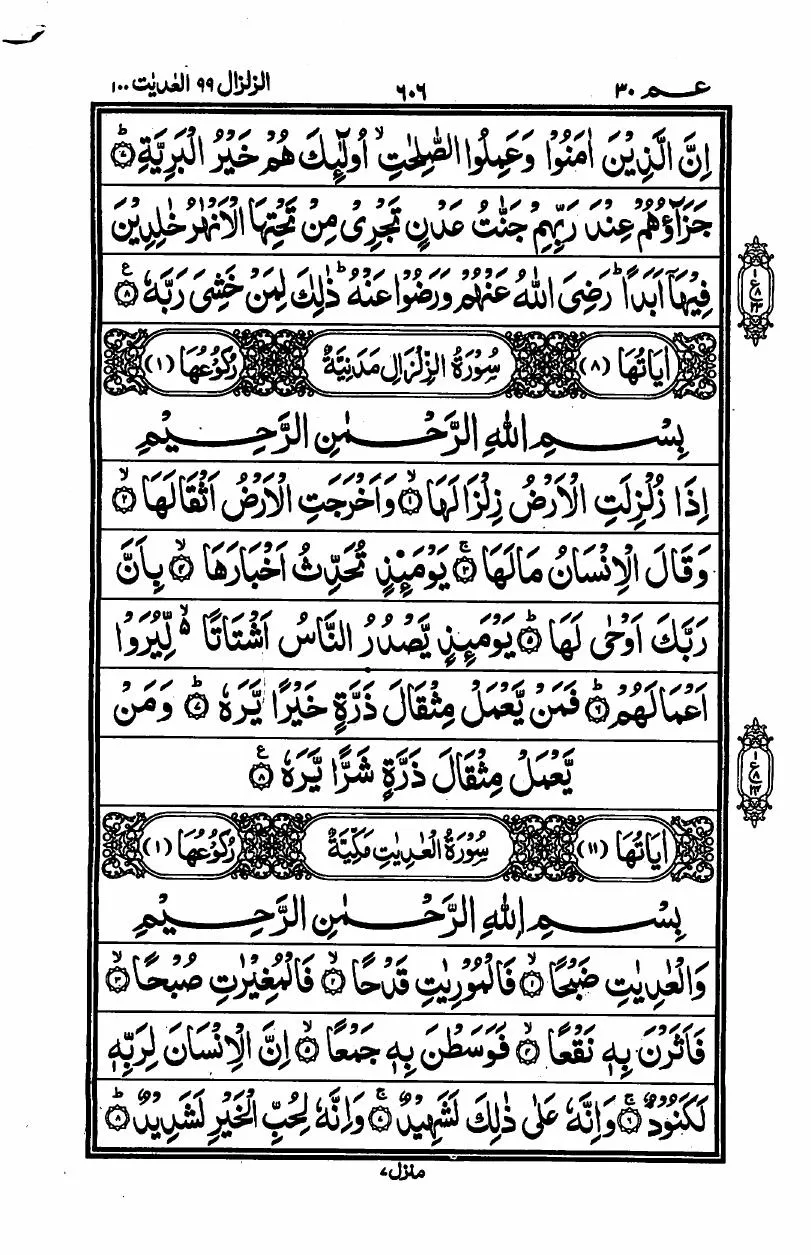 عـم ٣٠ ٦٠٦ الزلزال ٩٩ العٰدیٰت ١٠٠
اِنَّ الَّذِیْنَ اٰمَنُوْا وَعَمِلُوا الصّٰلِحٰتِ ۙ اُولٰٓئِكَ هُمْ خَیْرُ الْبَرِیَّةِ ؕ‏﴿۷﴾
جَزَآؤُهُمْ عِنْدَ رَبِّهِمْ جَنّٰتُ عَدْنٍ تَجْرِیْ مِنْ تَحْتِهَا الْاَنْهٰرُ خٰلِدِیْنَ
فِیْهَاۤ اَبَدًا ؕ رَضِیَ اللّٰهُ عَنْهُمْ وَرَضُوْا عَنْهُ ؕ ذٰلِكَ لِمَنْ خَشِیَ رَبَّهٗ ﴿۸﴾ ع
اٰیَاتُهَا (٨) سُوْرَةُ الزِّلْزَالِ مَدَنِیَّةٌ رُكُوْعُهَا (١)
بِسْمِ اللّٰهِ الرَّحْمٰنِ الرَّحِیْمِ
اِذَا زُلْزِلَتِ الْاَرْضُ زِلْزَالَهَا ۙ﴿۱﴾ وَاَخْرَجَتِ الْاَرْضُ اَثْقَالَهَا ۙ﴿۲﴾
وَقَالَ الْاِنْسَانُ مَالَهَا ۚ﴿۳﴾ یَوْمَئِذٍ تُحَدِّثُ اَخْبَارَهَا ۙ﴿۴﴾ بِاَنَّ
رَبَّكَ اَوْحٰی لَهَا ؕ﴿۵﴾ یَوْمَئِذٍ یَّصْدُرُ النَّاسُ اَشْتَاتًا ۙ۬ لِّیُرَوْا
اَعْمَالَهُمْ ؕ﴿۶﴾ فَمَنْ یَّعْمَلْ مِثْقَالَ ذَرَّةٍ خَیْرًا یَّرَهٗ ؕ﴿۷﴾ وَمَنْ
یَّعْمَلْ مِثْقَالَ ذَرَّةٍ شَرًّا یَّرَهٗ ﴿۸﴾ ع
اٰیَاتُهَا (١١) سُوْرَةُ الْعٰدِیٰتِ مَكِّیَّةٌ رُكُوْعُهَا (١)
بِسْمِ اللّٰهِ الرَّحْمٰنِ الرَّحِیْمِ
وَالْعٰدِیٰتِ ضَبْحًا ۙ﴿۱﴾ فَالْمُوْرِیٰتِ قَدْحًا ۙ﴿۲﴾ فَالْمُغِیْرٰتِ صُبْحًا ۙ﴿۳﴾
فَاَثَرْنَ بِهٖ نَقْعًا ۙ﴿۴﴾ فَوَسَطْنَ بِهٖ جَمْعًا ۙ﴿۵﴾ اِنَّ الْاِنْسَانَ لِرَبِّهٖ
لَكَنُوْدٌ ۚ﴿۶﴾ وَاِنَّهٗ عَلٰی ذٰلِكَ لَشَهِیْدٌ ۚ﴿۷﴾ وَاِنَّهٗ لِحُبِّ الْخَیْرِ لَشَدِیْدٌ ؕ﴿۸﴾
منزل ٧